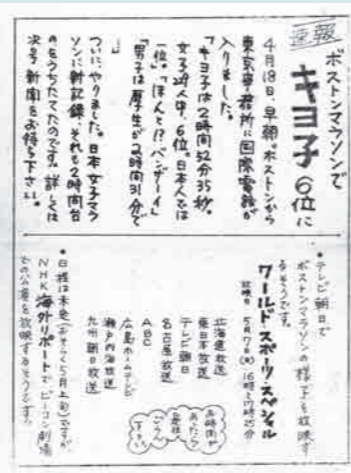 速報
ボストンマラソンで
キヨ子 6位に
4月18日、早朝。ボストンから
東京事務所に国際電話が
入りました。
「キヨ子は2時間52分35秒。
女子229人中、6位。日本人では
一位。」「ほんと!?バンザーイ」
「男子は厚生が2時間31分で
…」
ついに、やりました。日本女子マラ
ソンに新記録、それも2時間台
のをうちたてたのです。詳しくは
次号新聞をお待ち下さい。
●テレビ朝日で
ボストンマラソンの様子も放映す
るそうです。
ワールド・スポーツ・スペシャル
放映日 5月7日 16時〜17時25分
北海道放送
東日本放送
テレビ朝日
名古屋放送
ABC
広島ホームテレビ
瀬戸内海放送
九州朝日放送
お時間が
あったら
是非
ごらん
下さい
●日程は未定(おそらく5月上旬)ですが
NHK海外リポートでビーコン劇場
での公演を放映するそうです。